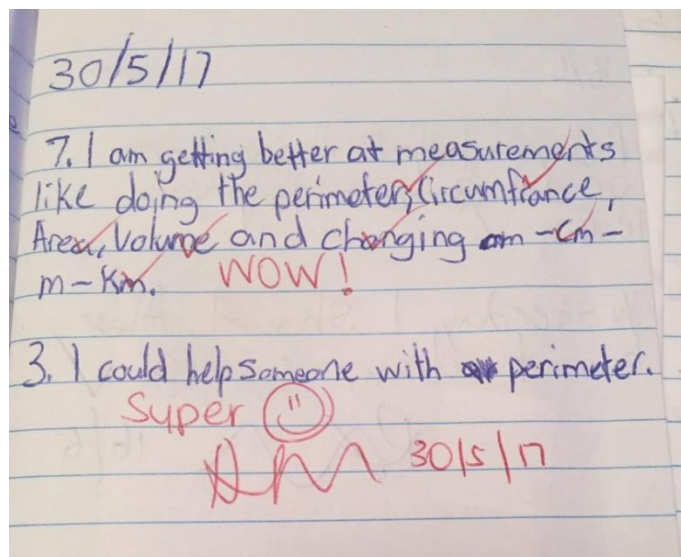 30/5/17
7. I am getting better at measurements
like doing the perimeter, Circumfrance,
Area, Volume and changing mm -cm-
m-Km. WOW!
3. I could help someone with perimeter.
Super
30/5/17